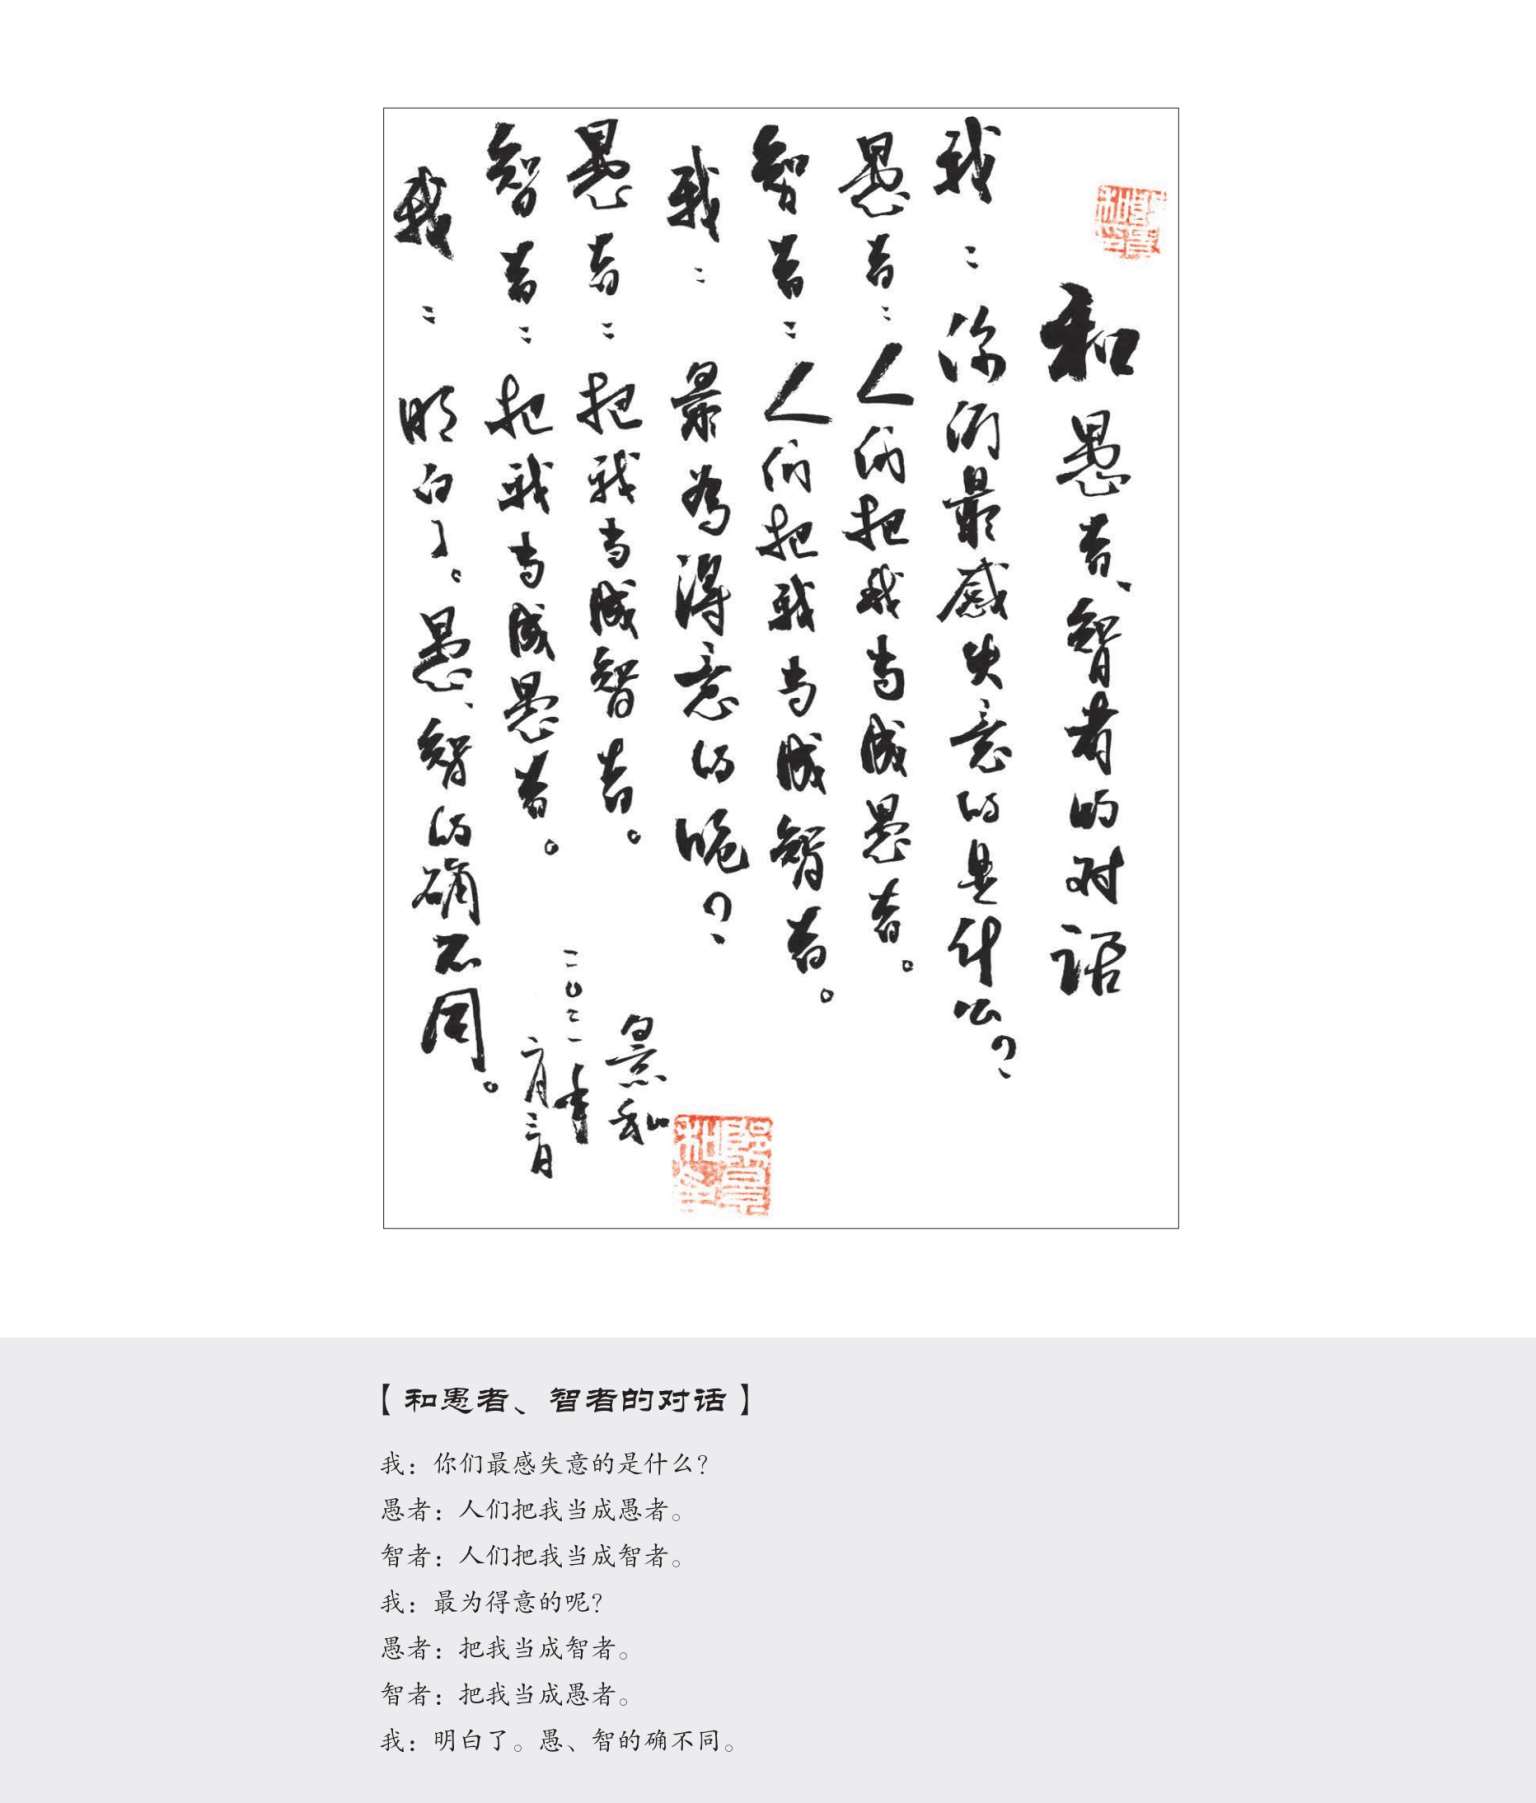 和愚者、智者的对话
我：你们最感失意的是什么？
愚者：人们把我当成愚者。
智者：人们把我当成智者。
我：最为得意的呢？
愚者：把我当成智者。
智者：把我当成愚者。
我：明白了。愚、智的确不同。
景和
二〇二一年
六月三日
【和愚者、智者的对话】
我：你们最感失意的是什么？
愚者：人们把我当成愚者。
智者：人们把我当成智者。
我：最为得意的呢？
愚者：把我当成智者。
智者：把我当成愚者。
我：明白了。愚、智的确不同。